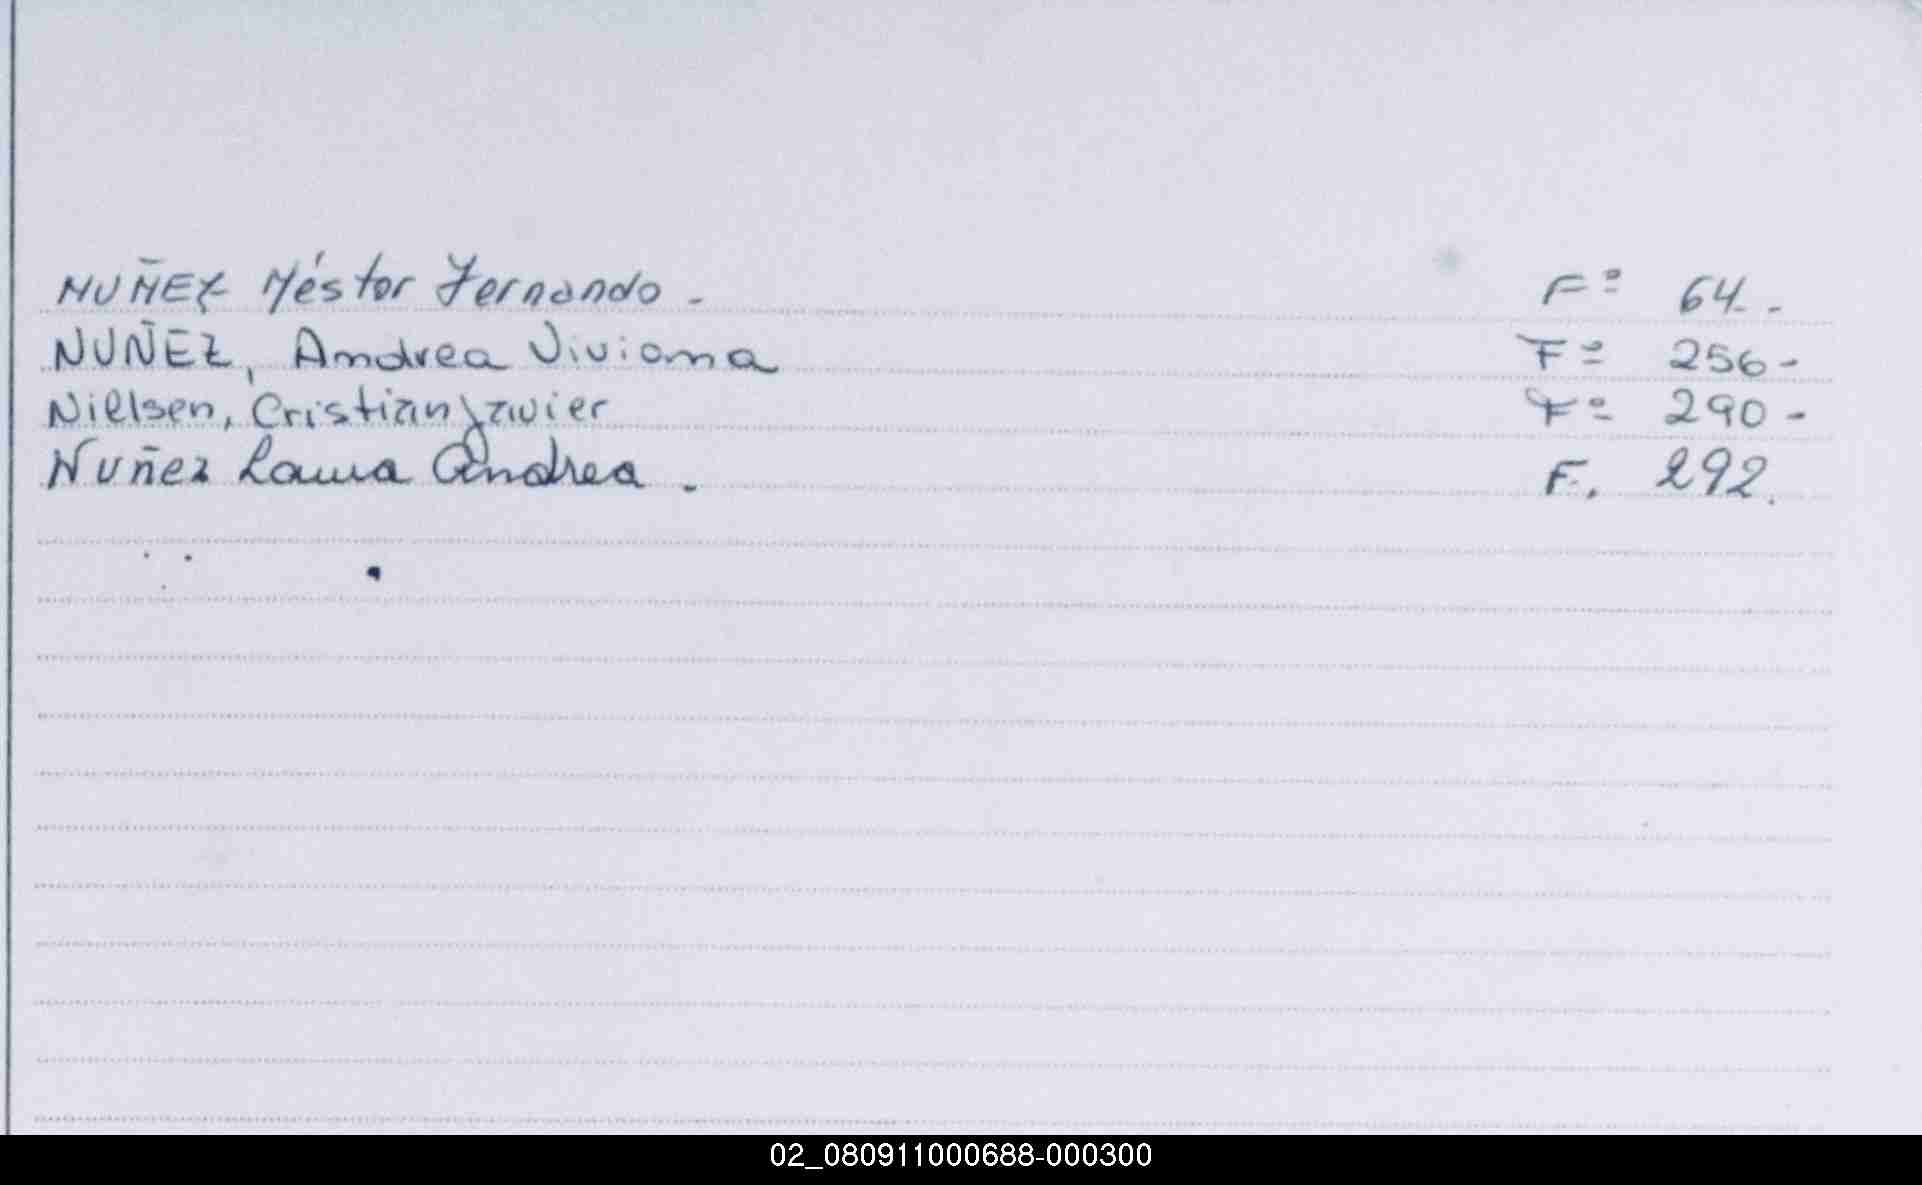 NUÑEZ Néstor Fernando - Fº 64 -
NUÑEZ, Andrea Viviana Fº 256 -
Nielsen, Cristian Javier Fº 290 -
Nuñez Laura Andrea . F. 292.
02_080911000688-000300